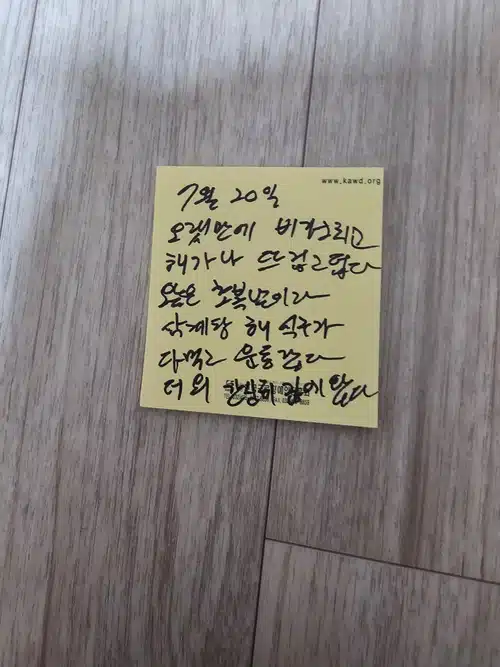 www.kawd.org
7월 20일
오랬만에 비 걷히고
해가나 뜨겁고 덥다
오늘은 초복날이라
삭계탕 해 식구가
다먹고 운동 갔다
더위 한창